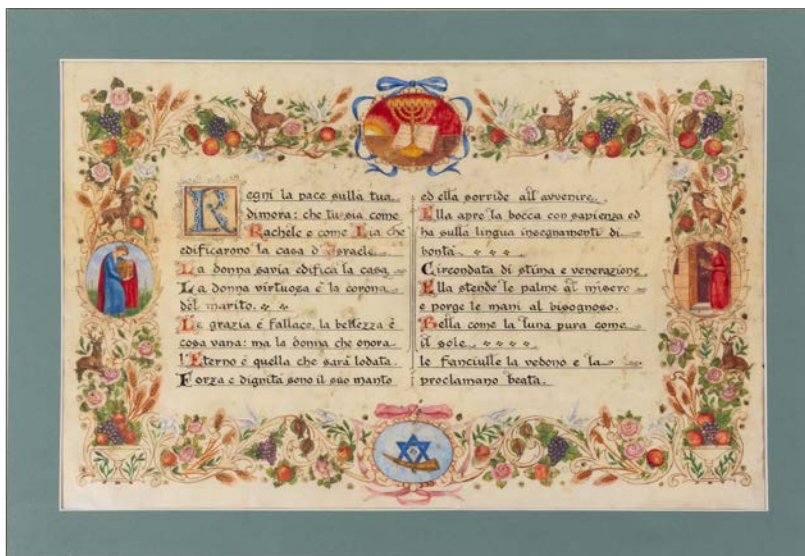 Regni la pace sulla tua
dimora: che tu sia come
Rachele e come Lia che
edificarono la casa d'Israele
La donna savia edifica la casa
La donna virtuosa é la corona
del marito.
La grazia é fallace, la bellezza é
cosa vana: ma la donna che onora
l'Eterno é quella che sará lodata.
Forza e dignitá sono il suo manto
ed ella sorride all'avvenire
Ella apre la bocca con sapienza ed
ha sulla lingua insegnamenti di
bontá
Circondata di stima e venerazione
Ella stende le palme al misero
e porge le mani al bisognoso.
Bella come la luna pura come
il sole
le fanciulle la vedono e la
proclamano beata.